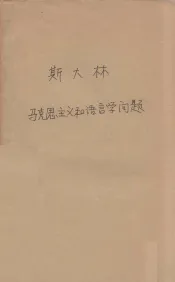 斯大林
马克思主义和语言学问题